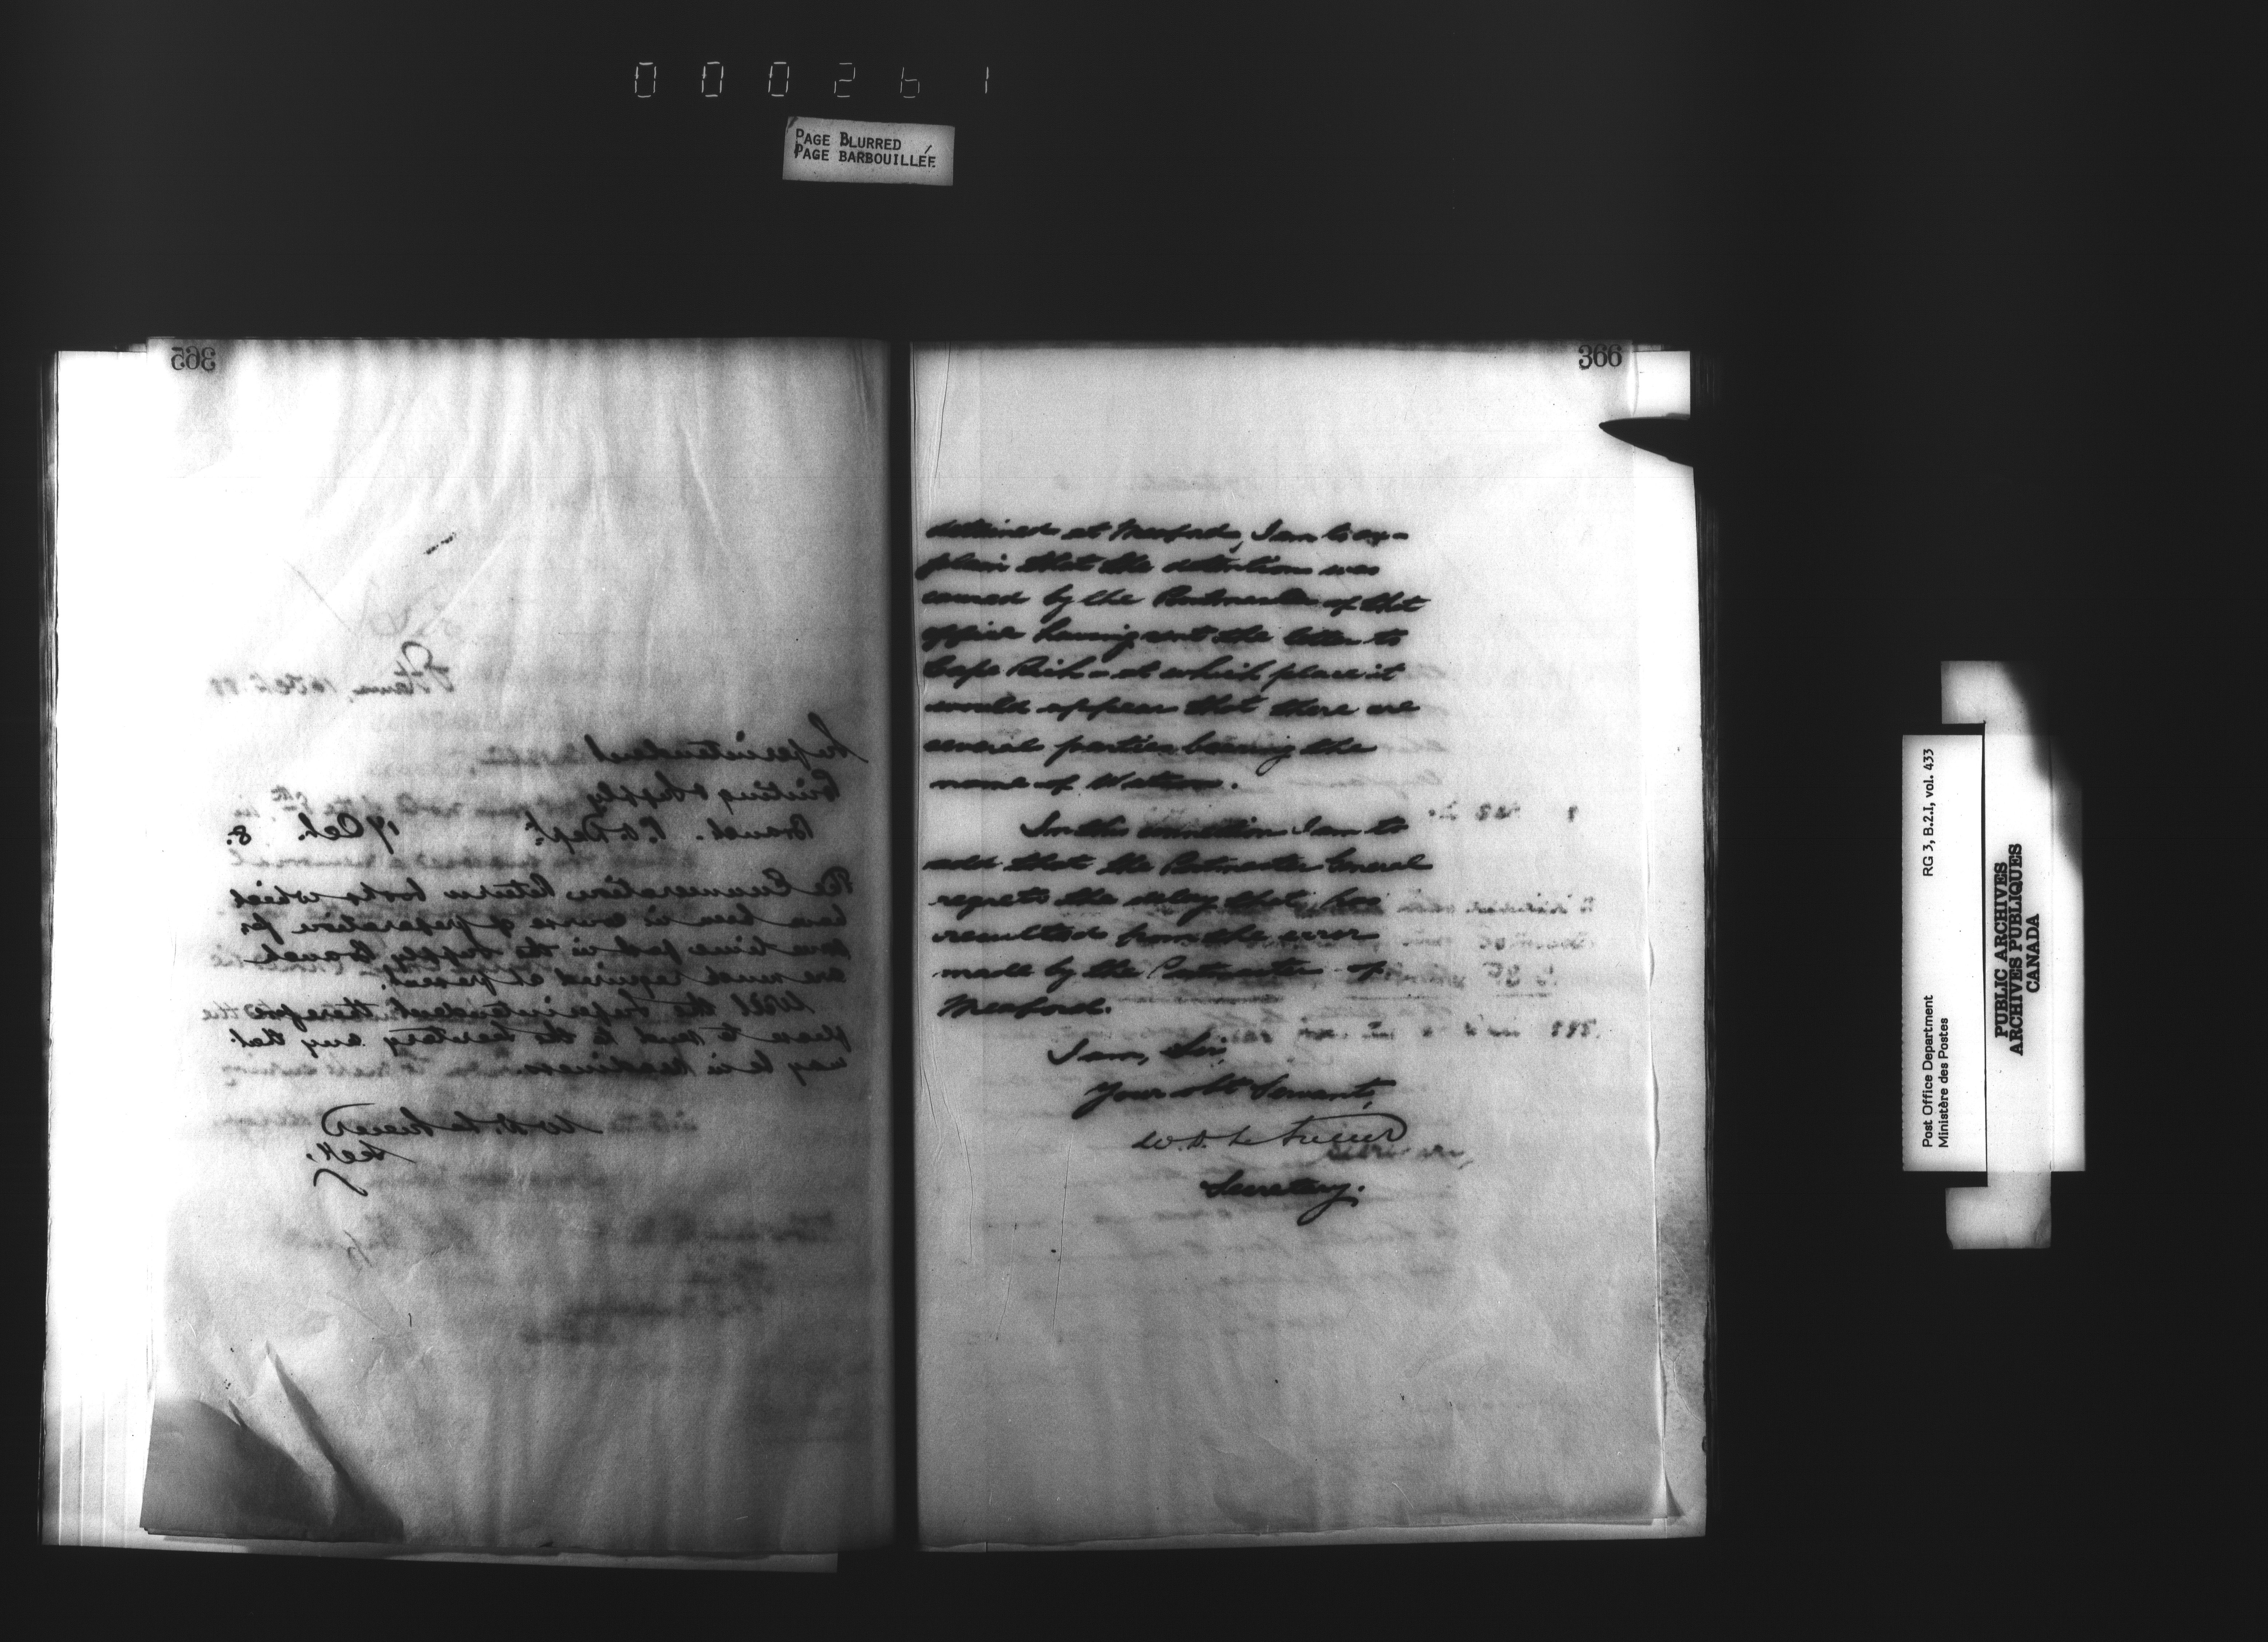 000261
PAGE BLURRED
PAGE BARBOUILLÉE
365
Ottawa, Oct.
Superintendent
Printing & Supply
Branch. P.O. Dept. 17 Oct. 8.
The Enumeration Return books which
have been in course of preparation for
some time past in the Supply Branch
are much required at present.
Will the Superintendent therefore
please to send to the Secretary any that
may be in readiness
W.D. LeSueur
Secy.
366
detained at Meaford, I am to ex-
plain that the detention was
caused by the Postmaster of that
office having sent the letter to
Cape Rich - at which place it
would appear that there are
several parties bearing the
name of Watson.
In this connection I am to
add that the Postmaster General
regrets the delay that has
resulted from the error
made by the Postmaster of
Meaford.
I am, Sir
Your obt Servant,
W.D. LeSueur
Secretary.
Post Office Department
Ministère des Postes
RG 3, B.2.I, vol. 433
PUBLIC ARCHIVES
ARCHIVES PUBLIQUES
CANADA